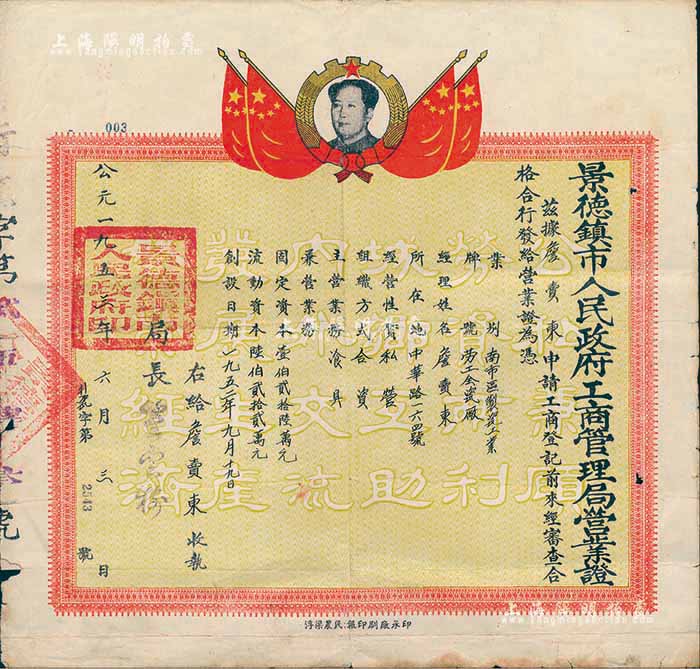 上海陽明拍賣
www.yangmingauction.com
003
景德鎮市人民政府工商管理局營業證
茲據詹賣東申請工商登記前來經審查合
格合行發給營業證為憑
業別 南市區製瓷工業
牌號 勞工合瓷廠
經理姓名 詹賣東
所在地 中華路一六四號
經營性質 私營
組織方式 合資
主營業務 飡具
兼營業務
固定資本 壹佰貳拾陸萬元
流動資本 陸佰貳拾貳萬元
創設日期 一九五二年九月十九日
右給詹賣東收執
局長
公元一九五三年六月三日
景德鎮市人民政府印
字第2543號
公勞扶內
經生交工
濟產流助利顧
浮梁農民報印刷廠承印
上海陽明拍賣
www.yangmingauction.com